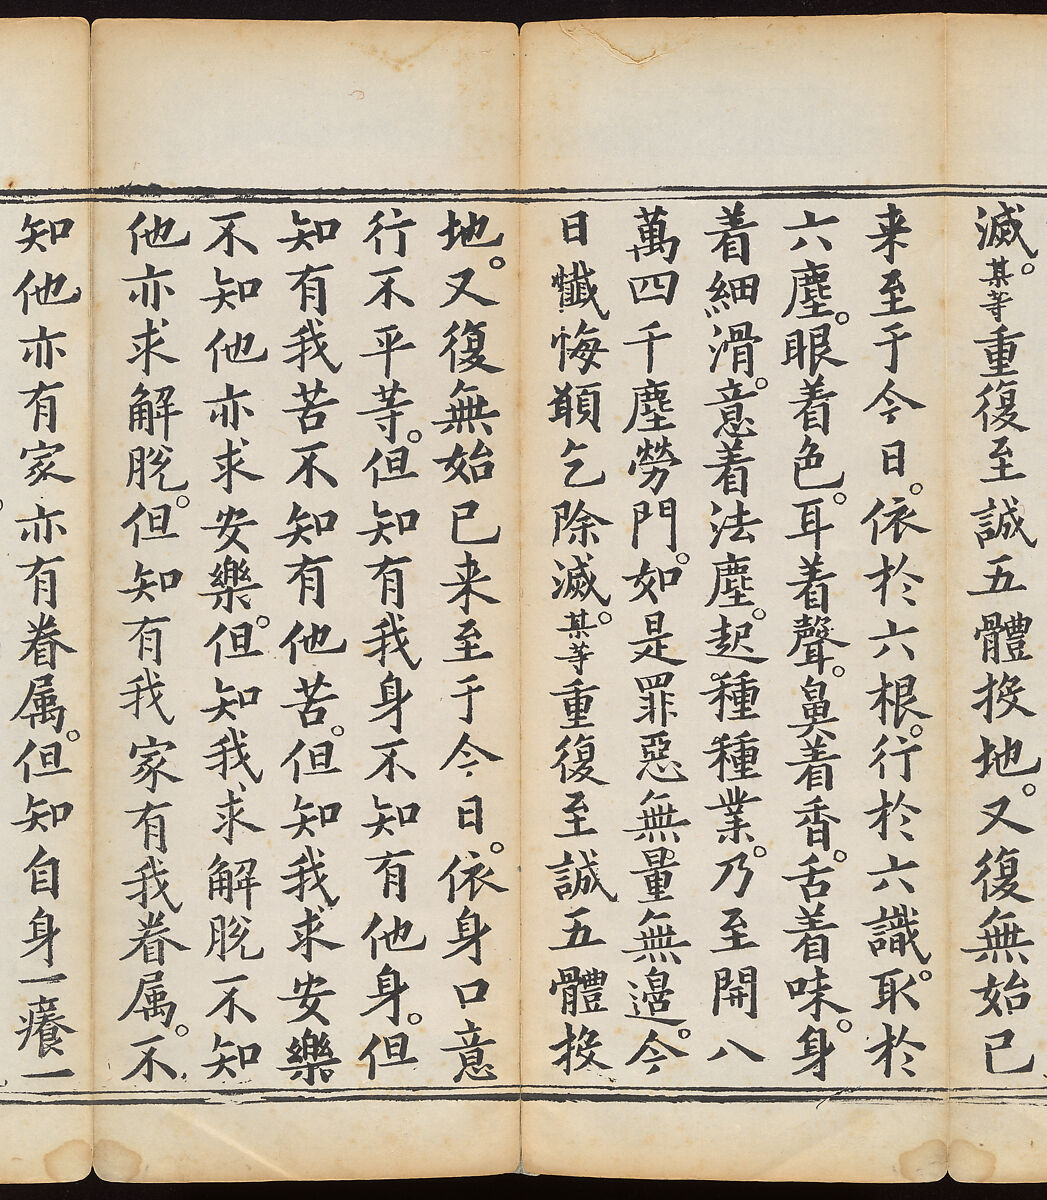 滅。某等重復至誠五體投地。又復無始已
来至于今日。依於六根。行於六識。取於
六塵。眼着色。耳着聲。鼻着香。舌着味。身
着細滑。意着法塵。起種種業。乃至開八
萬四千塵勞門。如是罪惡無量無邊。今
日懺悔願乞除滅。某等重復至誠五體投
地。又復無始已来至于今日。依身口意
行不平等。但知有我身不知有他身。但
知有我苦不知有他苦。但知我求安樂
不知他亦求安樂。但知我求解脫不知
他亦求解脫。但知有我家有我眷属。不
知他亦有家亦有眷属。但知自身一癢一